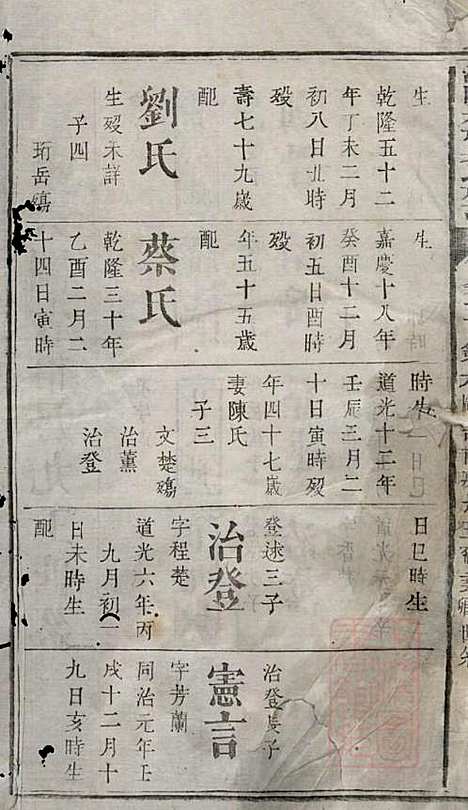 生
乾隆五十二
年丁未二月
初八日丑時
歿
壽七十九歲
配
劉氏
生歿未詳
子四
珩岳殤
生
嘉慶十八年
癸酉十二月
初五日酉時
歿
年五十五歲
配
蔡氏
乾隆三十年
乙酉二月二
十四日寅時
時生
道光十二年
壬辰三月二
十日寅時歿
年四十七歲
妻陳氏
子三
文楚殤
治薰
治登
日巳時生
登逑三子
治登
字程楚
道光六年丙
九月初一
日未時生
配
治登長子
憲言
字芳蘭
同治元年壬
戌十二月十
九日亥時生